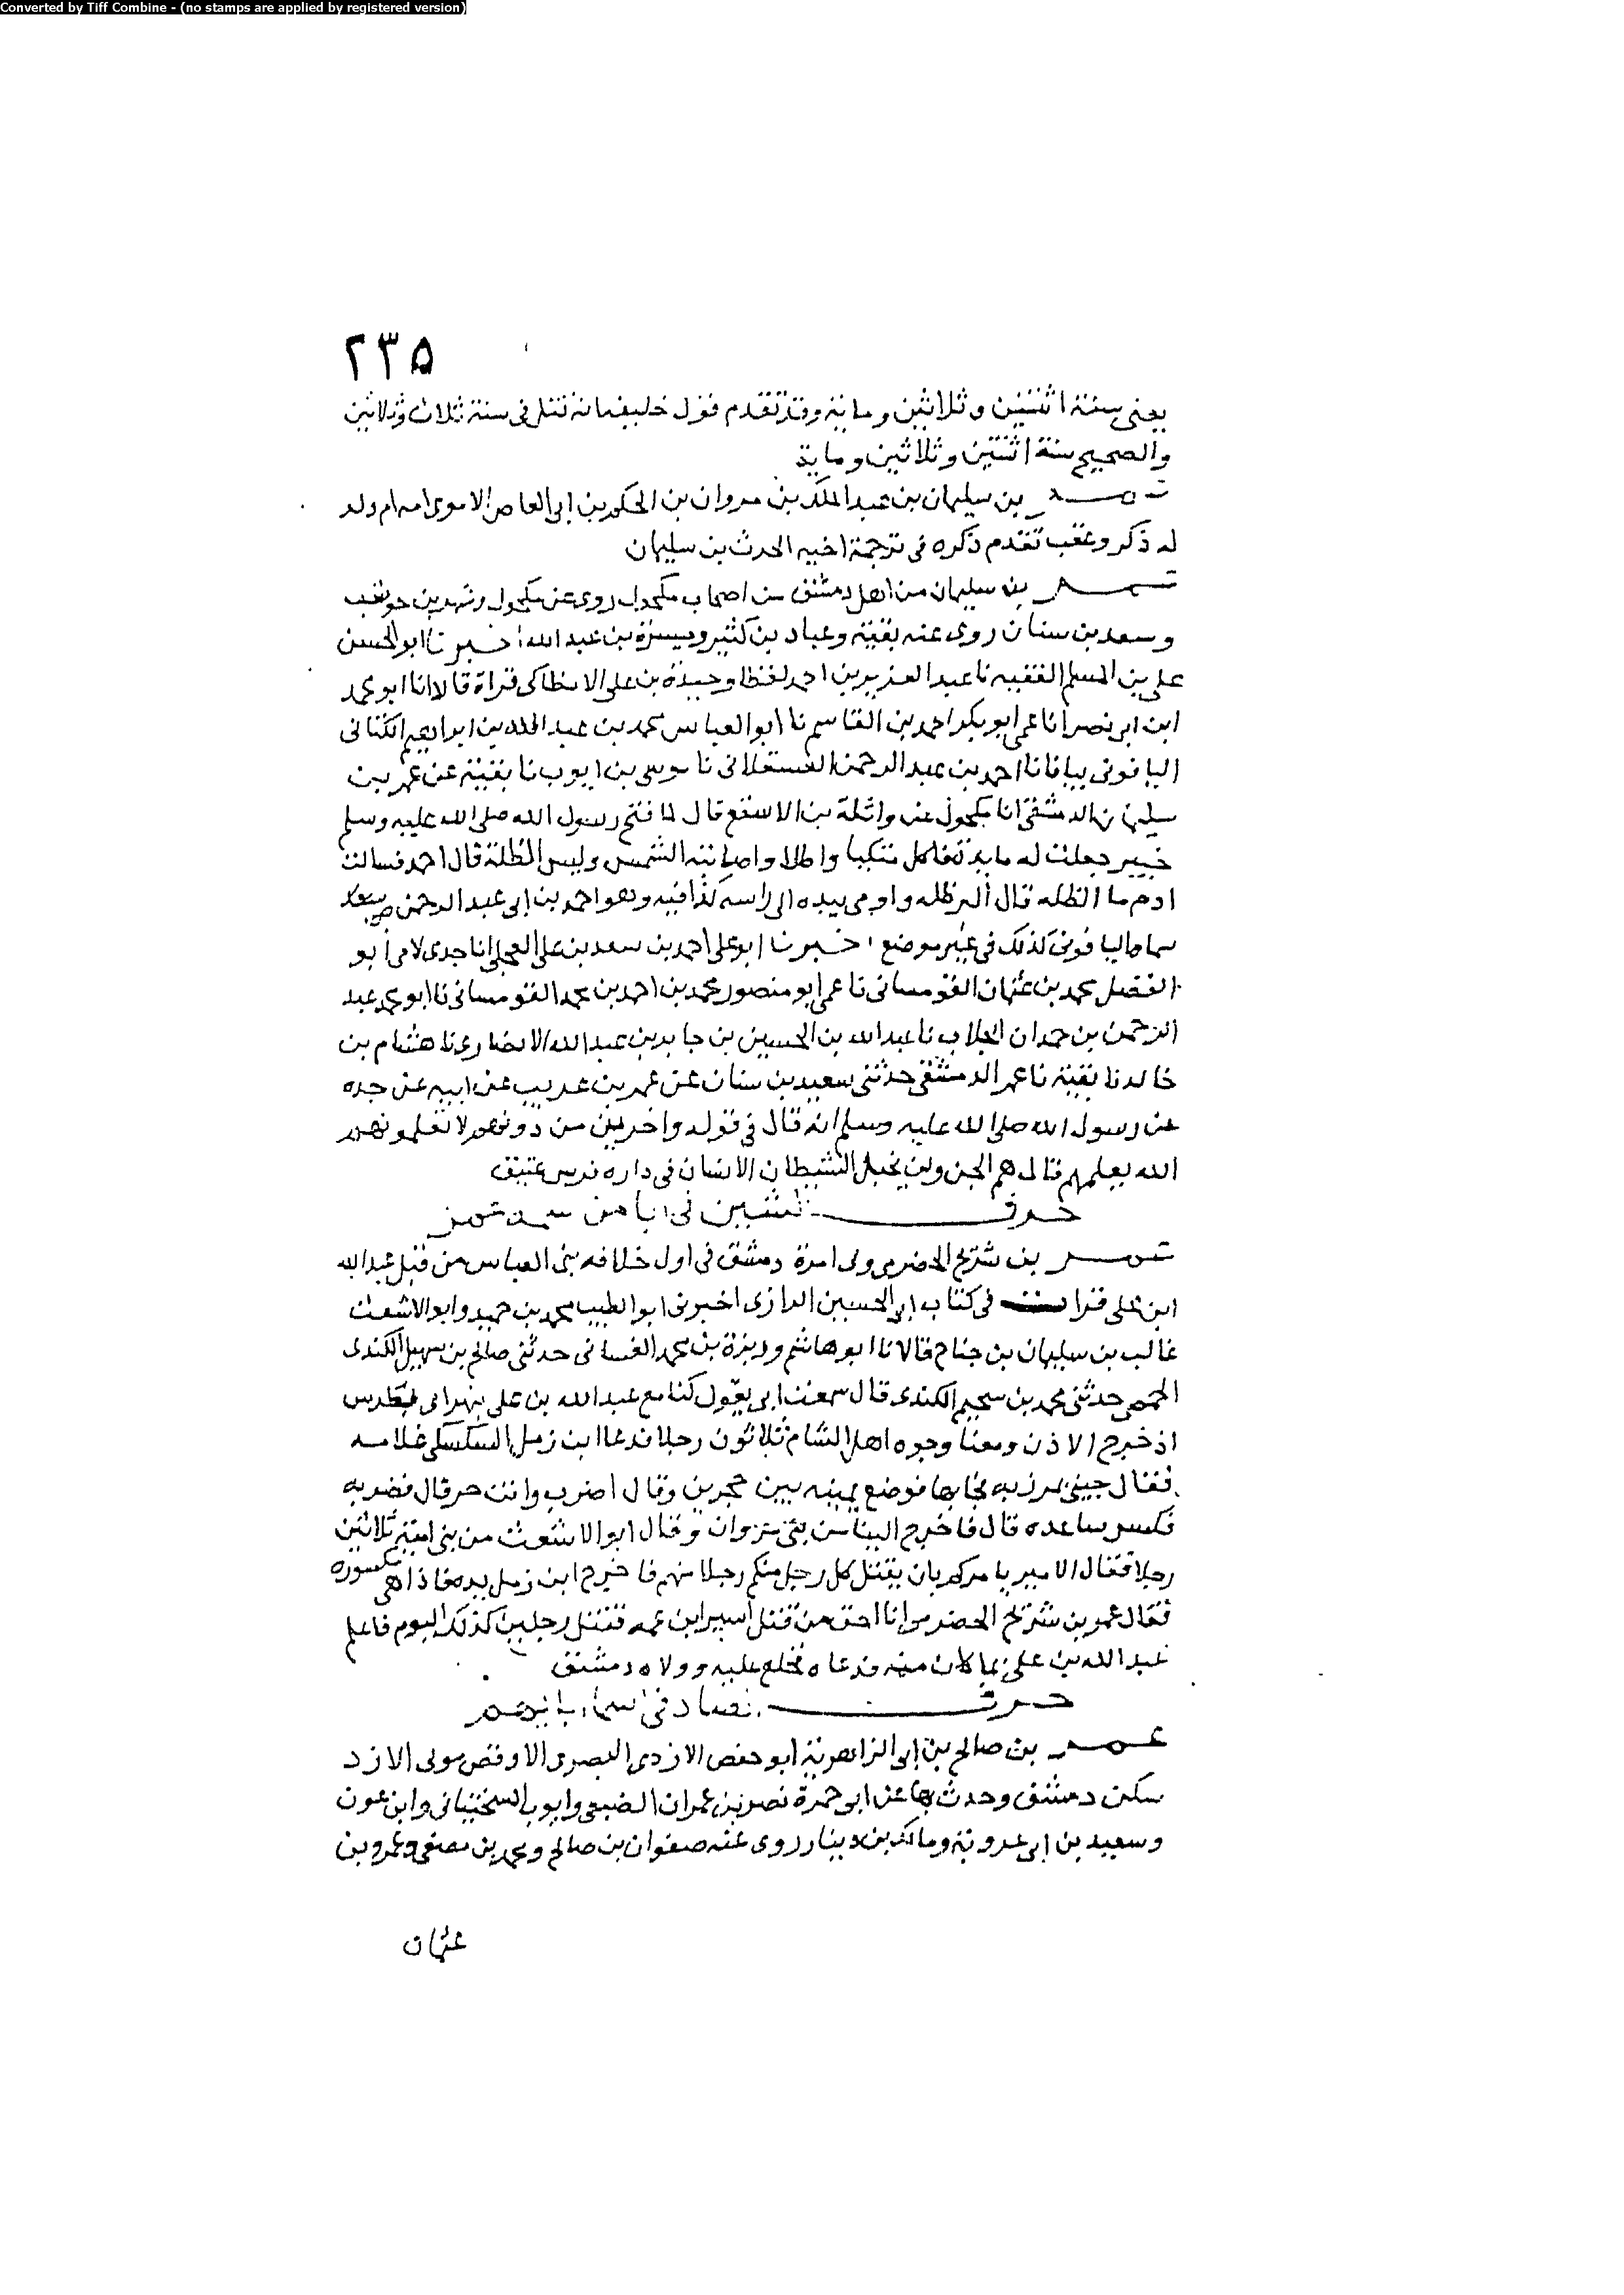 Converted by Tiff Combine - (no stamps are applied by registered version)
٢٣٥
يعنى سنة اثنتين وثلاثين وماية وقد تقدم قول خليفة انه قتل فى سنة ثلاث وثلاثين
والصحيح سنة اثنتين وثلاثين وماية
عمر بن سليمان بن عبد الملك بن مروان بن الحكم بن ابى العاص الاموى امه ام ولد
له ذكر وعقب تقدم ذكره فى ترجمة اخيه الحرث بن سليمان
عمر بن سليمان من اهل دمشق من اصحاب مكحول روى عن مكحول وشهر بن حوشب
وسعد بن سنان روى عنه بقية وعباد بن كثير وميسرة بن عبد الله اخبرنا ابو الحسن
على بن المسلم الفقيه نا عبد العزيز بن احمد لفظا وحيدة بن على الانطاكى قراة قالا انا ابو محمد
ابن ابى نصر انا عمى ابو بكر احمد بن القاسم نا ابو العباس محمد بن عبد الله بن ابراهيم الكنانى
اليافونى بيافا نا احمد بن عبد الرحمن العسقلانى نا موسى بن ايوب نا بقية عن عمر بن
سليمان الدمشقى انا مكحول عن واثلة بن الاسقع قال لما فتح رسول الله صلى الله عليه وسلم
خيبر جعلت له مايدة فاكل متكيا واطلا واصابته الشمس ولبس الظلة قال احمد فسالت
ادم ما الظله قال البرطله واومى بيده الى راسه كذا فيه وهو احمد بن ابى عبد الرحمن
اليافونى كذلك فى غير موضع اخبرنا ابو على احمد بن سعد بن على العجلى انا جدى لامى ابو
الفضل محمد بن عثمان القومسانى نا عمى ابو منصور محمد بن احمد بن محمد القومسانى نا ابو محمد عبد
الرحمن بن حمدان الجلاب نا عبد الله بن الحسين بن جابر بن عبد الله الانصارى نا هشام بن
خالد نا بقية نا عمر الدمشقى حدثنى سعيد بن سنان عن عمر بن عريب عن ابيه عن جده
عن رسول الله صلى الله عليه وسلم انه قال فى قوله واخرين من دونهم لا تعلمونهم
الله يعلمهم قال هم الجن ولن يخبل الشيطان الانسان فى داره فرس عتيق
حرف الشين فى ابا من سمه عمر
عمر بن شريح الحضرمى ولى امرة دمشق فى اول خلافه بنى العباس من قبل عبد الله
ابن على قرات فى كتاب ابى الحسين الرازى اخبرنى ابو الطيب محمد بن حميد وابو الاشعث
غالب بن سليمان بن جناح قالا نا ابو هاشم وريزة بن محمد الغسانى حدثنى صالح بن سهيل الكندى
الحمصى حدثنى محمد بن سحيم الكندى قال سمعت ابى يقول كنا مع عبد الله بن على بنهر ابى فطرس
اذ خرج الاذن ومعنا وجوه اهل الشام ثلاثون رجلا فدعا ابن زمل السكسكى غلامه
فقال جينى بمرزبه فجا بها فوضع يمينه بين حجرين وقال اضرب وانت حر قال فضربه
فكسر ساعده قال فاخرج الينا من بنى مروان وقال ابو الاشعث من بنى امية ثلاثين
رجلا فقال الامير يامركم بان يقتل كل رجل منكم رجلا منهم فاخرج ابن زمل يده فاذا هى مكسوره
فقال عمر بن شريح الحضرمى انا احق من قتل اسير ابن عمه فقتل رجلين كذلك اليوم فاعلم
عبد الله بن على بما كان منه فدعاه فخلع عليه وولاه دمشق
حرف الصاد فى اسما ابايهم
عمر بن صالح بن ابى الزاهرية ابو حفص الازدى البصرى الاوقص مولى الازد
سكن دمشق وحدث بها عن ابى حمزة نصر بن عمران الضبعى وايوب السختيانى وابن عون
وسعيد بن ابى عروبة ومالك بن دينار روى عنه صفوان بن صالح ومحمد بن مصفى وعمرو بن
عثمان